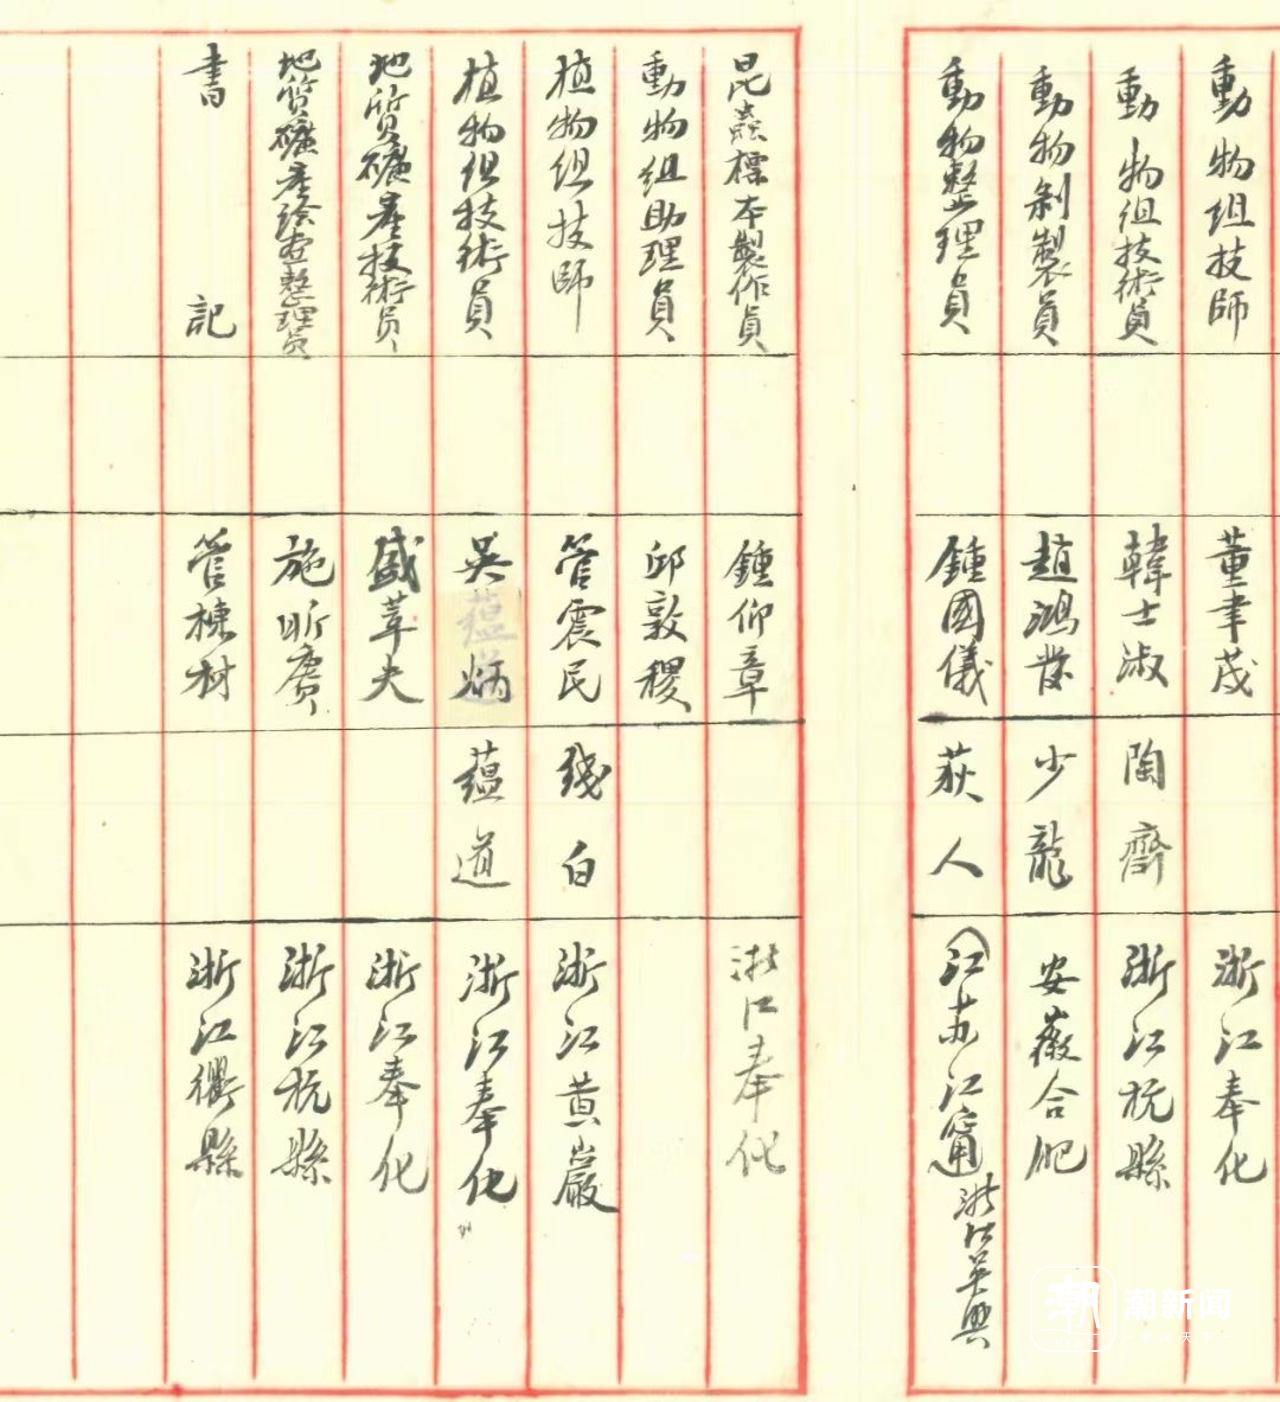 動物組技師 董聿茂 浙江奉化
動物組技術員 韓士淑 陶齋 浙江杭縣
動物剝製員 趙鴻發 少龍 安薇合肥
動物整理員 鍾國儀 荻人 (江苏江甯 浙江吴興
昆蟲標本製作員 鍾仰章 浙江奉化
動物組助理員 邱敦稷
植物組技師 管震民 錢白 浙江黄巖
植物組技術員 吴蘊炳 蘊道 浙江奉化
地質礦產技術员 盛莘夫 浙江奉化
地質礦產绘画整理员 施昕賡 浙江杭縣
書記 管棟材 浙江衢縣
潮新闻